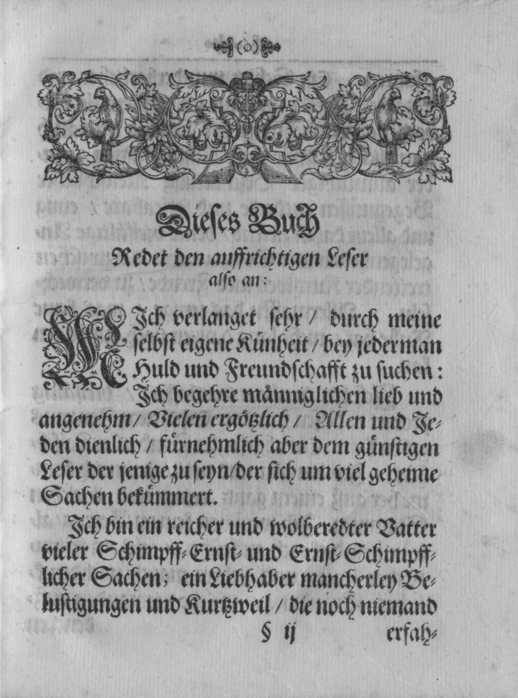 (o)
Dieses Buch
Redet den auffrichtigen Leser
also an:
MIch verlanget sehr / durch meine
selbst eigene Künheit / bey jederman
Huld und Freundschafft zu suchen:
Ich begehre männiglichen lieb und
angenehm / Vielen ergötzlich / Allen und Je-
den dienlich / fürnehmlich aber dem günstigen
Leser der jenige zu seyn / der sich um viel geheime
Sachen bekümmert.
Ich bin ein reicher und wolberedter Vatter
vieler Schimpff-Ernst- und Ernst-Schimpff-
licher Sachen; ein Liebhaber mancherley Be-
lustigungen und Kurtzweil / die noch niemand
§ ij erfah-